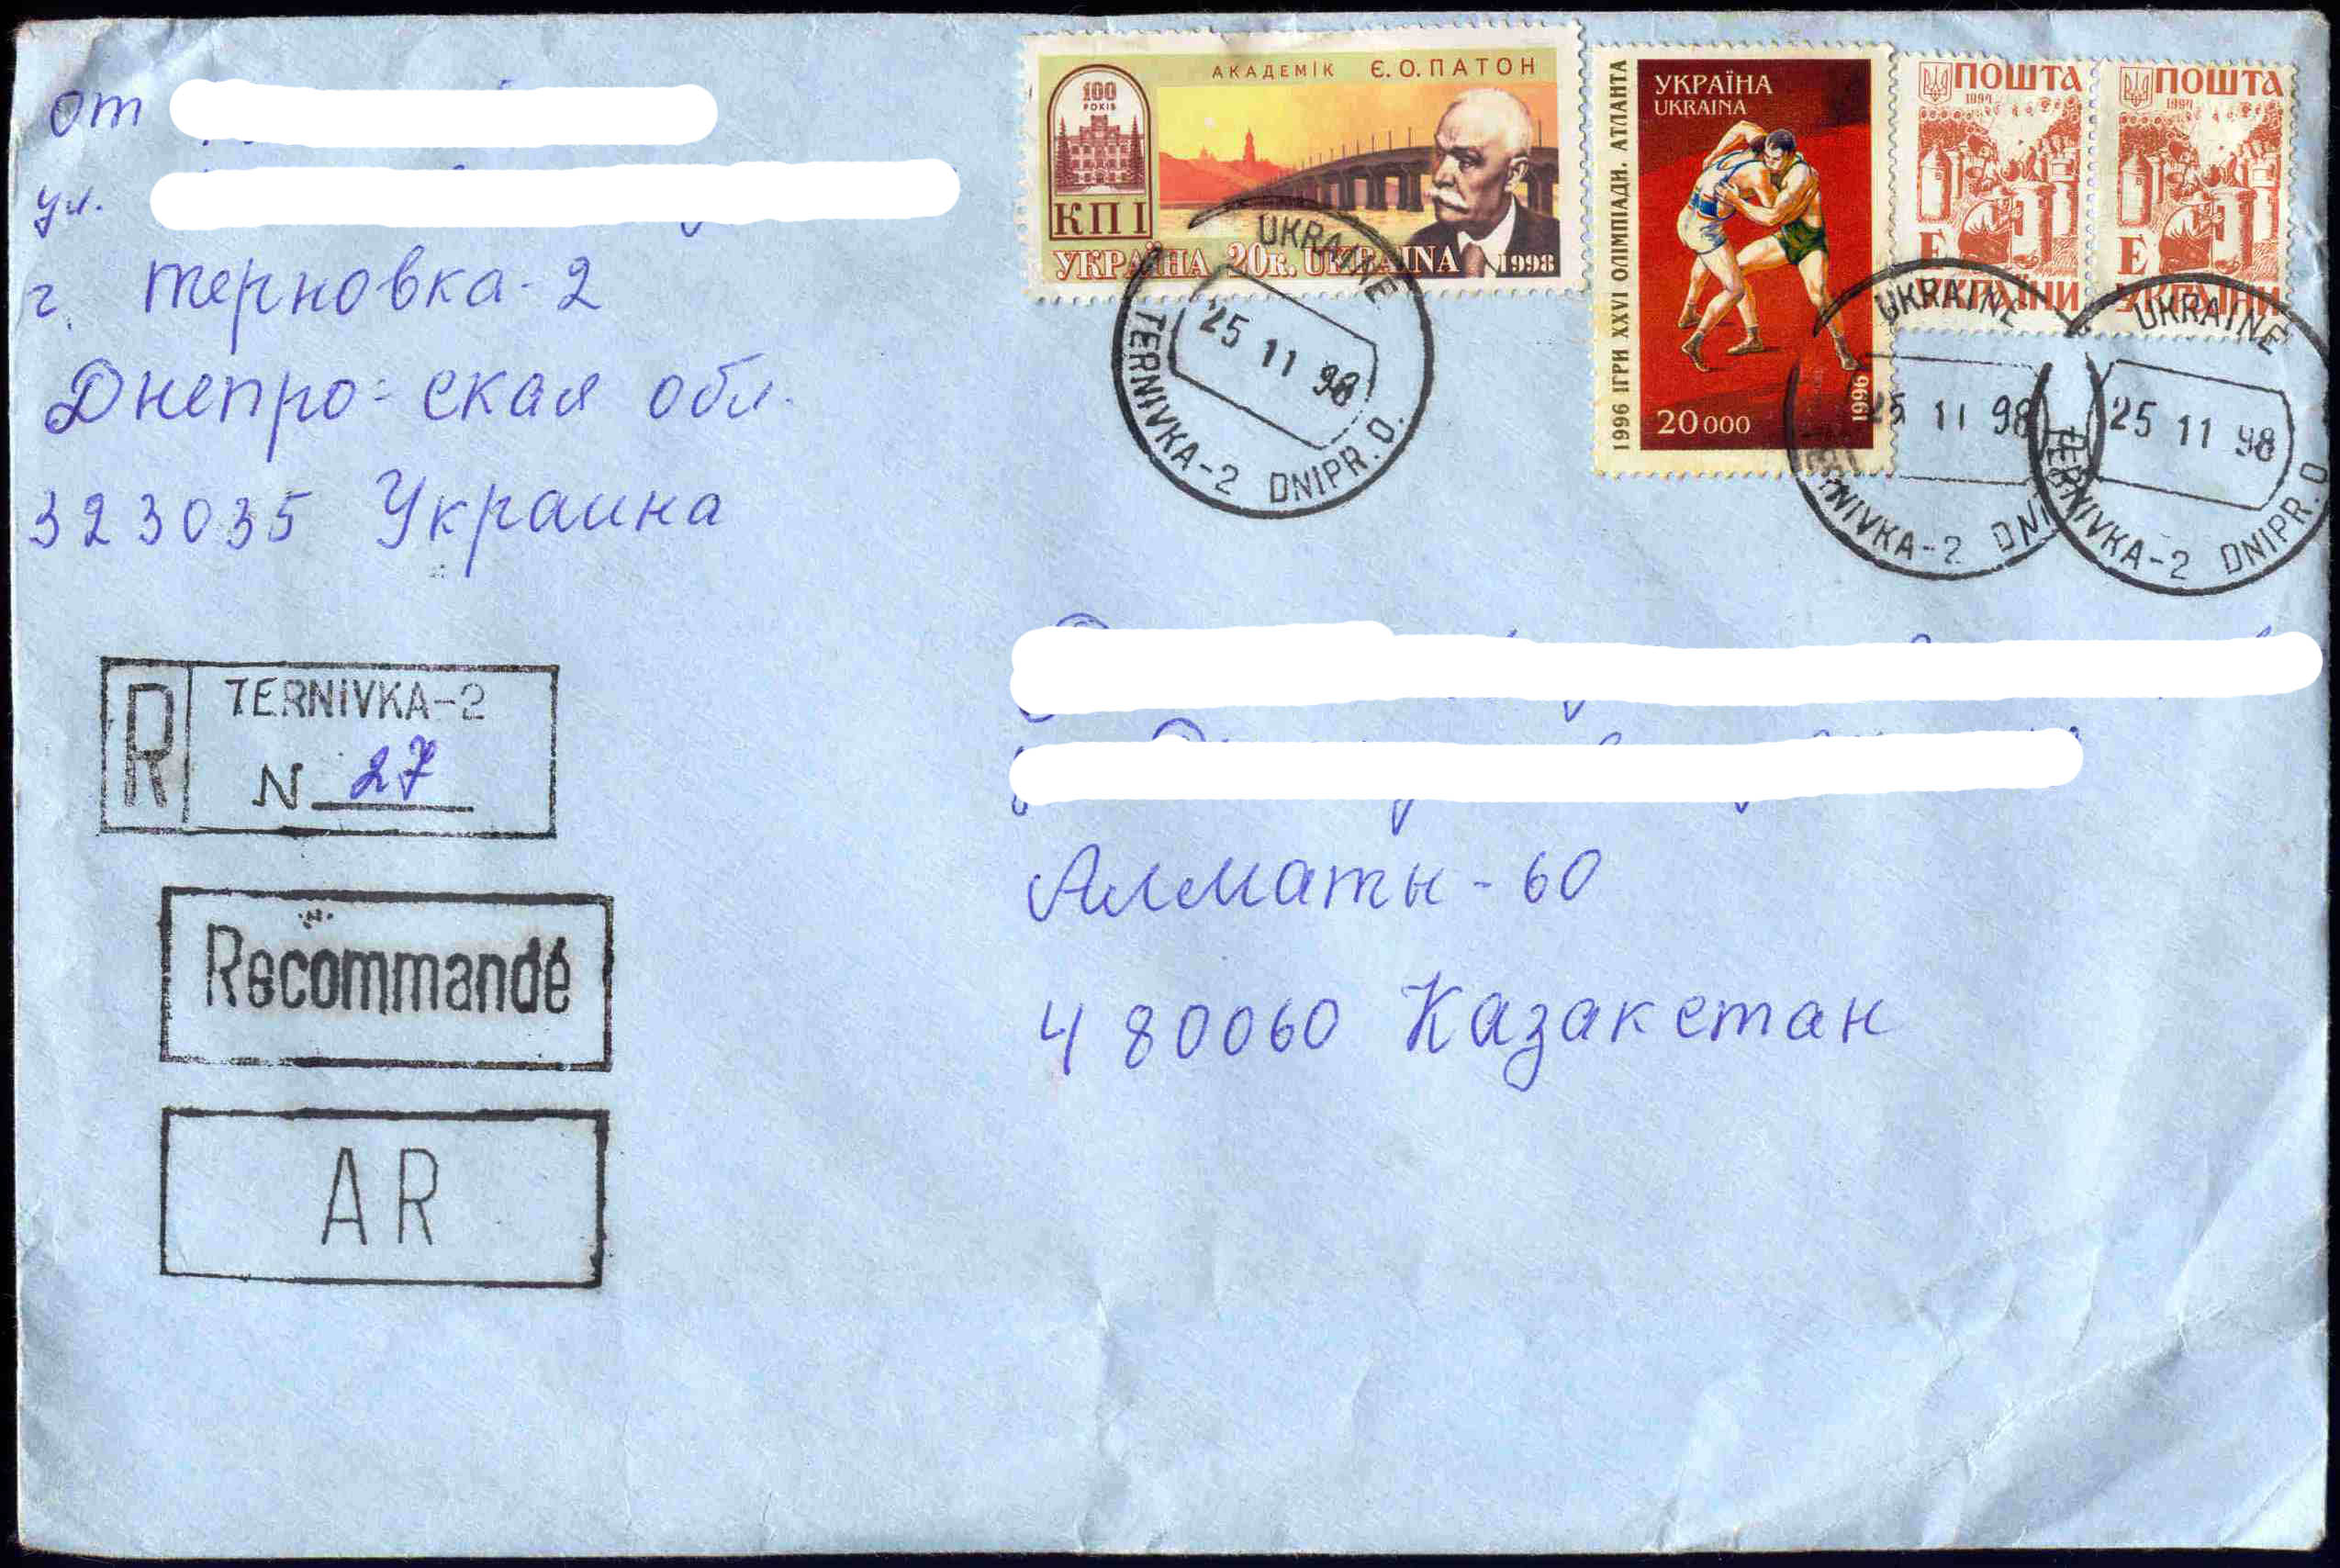 от
ул.
г. терновка-2
Днепро=ская обл.
323035 Украина
100
РОКІВ
КПІ
АКАДЕМІК Є.О.ПАТОН
УКРАЇНА 20к. UKRAINA 1998
1996 ІГРИ XXVI ОЛІМПІАДИ. АТЛАНТА
УКРАЇНА
UKRAINA
20 000
1996
ПОШТА
1994
Е
УКРАЇНИ
ПОШТА
1994
Е
УКРАЇНИ
UKRAINE
25 11 98
TERNIVKA-2 DNIPR.O.
UKRAINE
25 11 98
TERNIVKA-2 DNI
UKRAINE
25 11 98
TERNIVKA-2 DNIPR.O
R TERNIVKA-2
N 27
Recommandé
AR
Алматы-60
480060 Казакстан